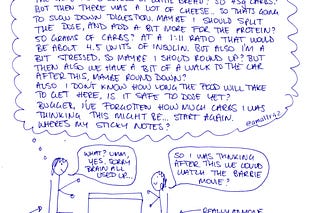 BUT THEN THERE WAS A LOT OF CHEESE. SO THAT'S GOING
TO SLOW DOWN DIGESTION. MAYBE I SHOULD SPLIT
THE DOSE, AND ADD A BIT MORE FOR THE PROTEIN?
50 GRAMS OF CARBS? AT A 1:11 RATIO THAT WOULD
BE ABOUT 4.5 UNITS OF INSULIN. BUT ALSO I'M A
BIT STRESSED. SO MAYBE I SHOULD ROUND UP? BUT
THEN ALSO WE HAVE A BIT OF A WALK TO THE CAR
AFTER THIS, MAYBE ROUND DOWN?
ALSO I DON'T KNOW HOW LONG THE FOOD WILL TAKE
TO GET HERE, IS IT SAFE TO DOSE YET?
BUGGER, I'VE FORGOTTEN HOW MUCH CARBS I WAS
THINKING THIS MIGHT BE... START AGAIN.
WHERE'S MY STICKY NOTES?
WHAT? UMM,
YES, SORRY
BRAIN ALL
USED UP...
SO I WAS THINKING
AFTER THIS WE COULD
WATCH THE BARBIE
MOVIE?